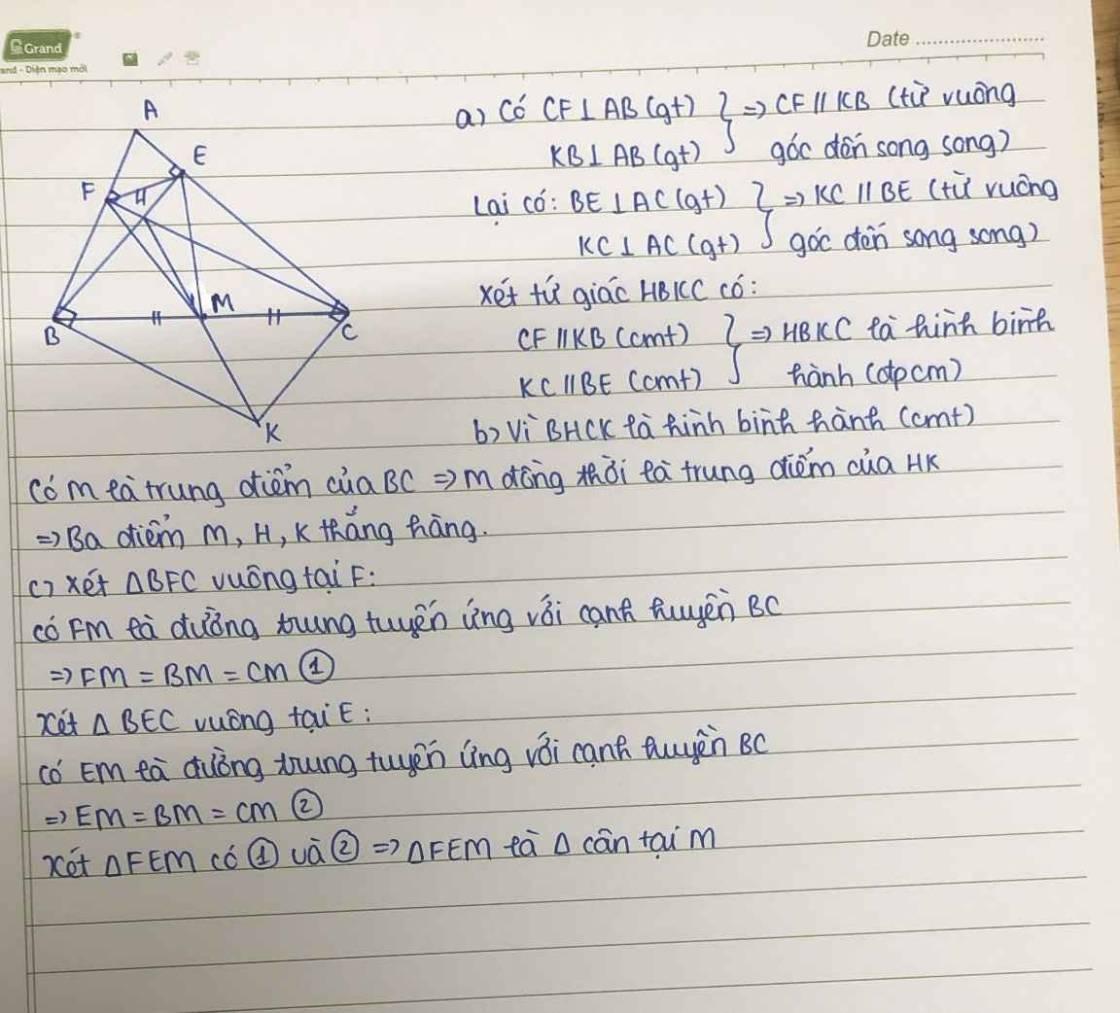 Grand
and - Diện mạo mới
Date
A
E
F
H
M
B
C
K
a) Có CF⊥AB (gt) } => CF // KB (từ vuông
KB⊥AB (gt) góc đến song song)
Lại có: BE⊥AC (gt) } => KC // BE (từ vuông
KC⊥AC (gt) góc đến song song)
Xét tứ giác HBKC có:
CF // KB (cmt) } => HBKC là hình bình
KC // BE (cmt) hành (đpcm)
b) Vì BHCK là hình bình hành (cmt)
Có M là trung điểm của BC => M đồng thời là trung điểm của HK
=> Ba điểm M, H, K thẳng hàng.
c) Xét ΔBFC vuông tại F:
có FM là đường trung tuyến ứng với cạnh huyền BC
=> FM = BM = CM ①
Xét Δ BEC vuông tại E:
có EM là đường trung tuyến ứng với cạnh huyền BC
=> EM = BM = CM ②
Xét ΔFEM có ① và ② => ΔFEM là Δ cân tại M